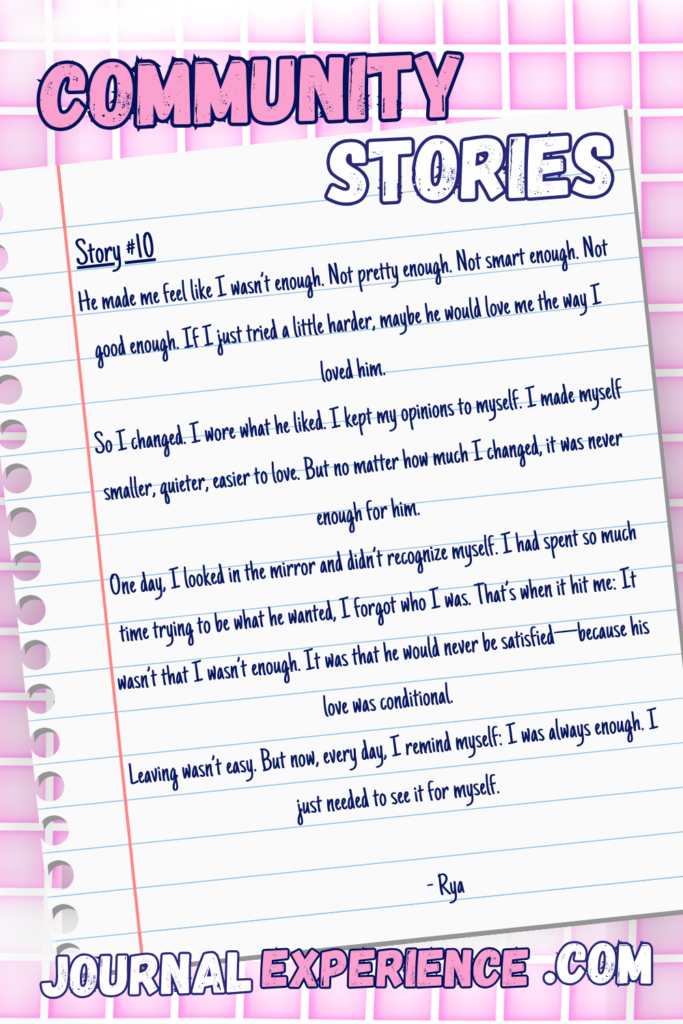 COMMUNITY
STORIES
Story #10
He made me feel like I wasn't enough. Not pretty enough. Not smart enough. Not
good enough. If I just tried a little harder, maybe he would love me the way I
loved him.
So I changed. I wore what he liked. I kept my opinions to myself. I made myself
smaller, quieter, easier to love. But no matter how much I changed, it was never
enough for him.
One day, I looked in the mirror and didn't recognize myself. I had spent so much
time trying to be what he wanted, I forgot who I was. That's when it hit me: It
wasn't that I wasn't enough. It was that he would never be satisfied—because his
love was conditional.
Leaving wasn't easy. But now, every day, I remind myself: I was always enough. I
just needed to see it for myself.
- Rya
JOURNAL EXPERIENCE .COM